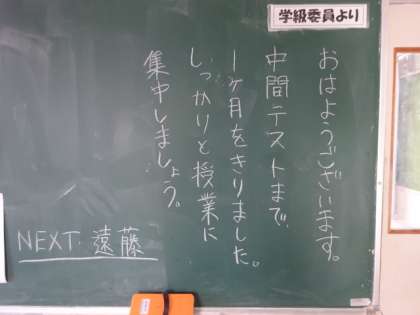 学級委員より
おはようございます。
中間テストまで
1ヶ月をきりました。
しっかりと授業に
集中しましょう。
NEXT. 遠藤